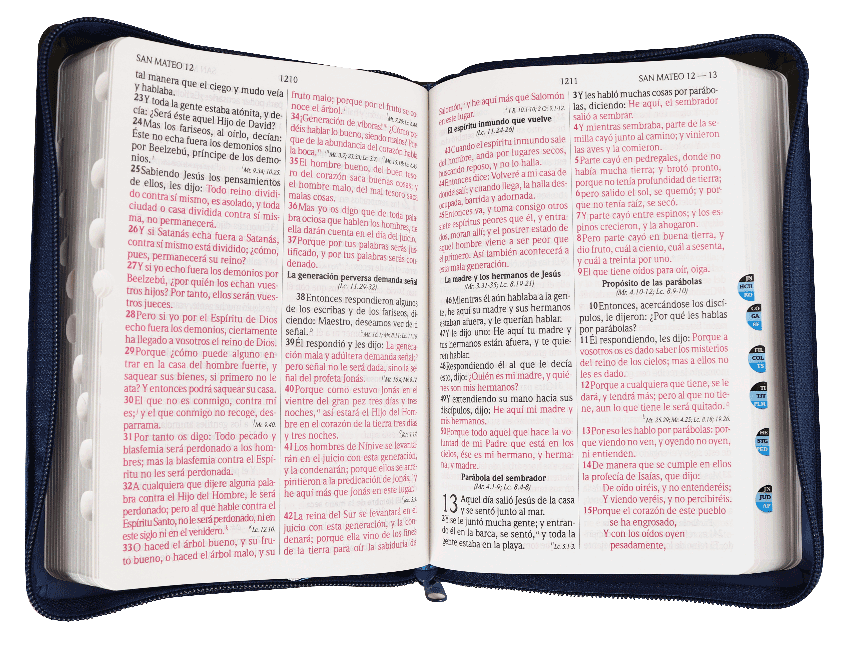 SAN MATEO 12
1210
tal manera que el ciego y mudo veía
y hablaba.
23 Y toda la gente estaba atónita, y de-
cía: ¿Será éste aquel Hijo de David?
24 Mas los fariseos, al oírlo, decían:
Éste no echa fuera los demonios sino
por Beelzebú, príncipe de los demo-
nios.
Mt. 9.34; 10.25.
25 Sabiendo Jesús los pensamientos
de ellos, les dijo: Todo reino dividi-
do contra sí mismo, es asolado, y toda
ciudad o casa dividida contra sí mis-
ma, no permanecerá.
26 Y si Satanás echa fuera a Satanás,
contra sí mismo está dividido; ¿cómo,
pues, permanecerá su reino?
27 Y si yo echo fuera los demonios por
Beelzebú, ¿por quién los echan vues-
tros hijos? Por tanto, ellos serán vues-
tros jueces.
28 Pero si yo por el Espíritu de Dios
echo fuera los demonios, ciertamente
ha llegado a vosotros el reino de Dios.
29 Porque ¿cómo puede alguno en-
trar en la casa del hombre fuerte, y
saquear sus bienes, si primero no le
ata? Y entonces podrá saquear su casa.
30 El que no es conmigo, contra mí
es; y el que conmigo no recoge, des-
parrama.
Mr. 9.40.
31 Por tanto os digo: Todo pecado y
blasfemia será perdonado a los hom-
bres; mas la blasfemia contra el Espí-
ritu no les será perdonada.
32 A cualquiera que dijere alguna pala-
bra contra el Hijo del Hombre, le será
perdonado; pero al que hable contra el
Espíritu Santo, no le será perdonado, ni en
este siglo ni en el venidero.
Lc. 12.10.
33 O haced el árbol bueno, y su fru-
to bueno, o haced el árbol malo, y su
fruto malo; porque por el fruto se co-
noce el árbol.
34 ¡Generación de víboras! ¿Cómo po-
déis hablar lo bueno, siendo malos? Por-
que de la abundancia del corazón habla
la boca.
35 El hombre bueno, del buen teso-
ro del corazón saca buenas cosas; y
el hombre malo, del mal tesoro saca
malas cosas.
36 Mas yo os digo que de toda pala-
bra ociosa que hablen los hombres, de
ella darán cuenta en el día del juicio.
37 Porque por tus palabras serás jus-
tificado, y por tus palabras serás con-
denado.
La generación perversa demanda señal
(Lc. 11.29-32)
38 Entonces respondieron algunos
de los escribas y de los fariseos, di-
ciendo: Maestro, deseamos ver de ti
señal.
39 Él respondió y les dijo: La genera-
ción mala y adúltera demanda señal;
pero señal no le será dada, sino la se-
ñal del profeta Jonás.
40 Porque como estuvo Jonás en el
vientre del gran pez tres días y tres
noches, así estará el Hijo del Hom-
bre en el corazón de la tierra tres días
y tres noches.
41 Los hombres de Nínive se levantarán
en el juicio con esta generación,
y la condenarán; porque ellos se arre-
pintieron a la predicación de Jonás, y
he aquí más que Jonás en este lugar.
42 La reina del Sur se levantará en el
juicio con esta generación, y la con-
denará; porque ella vino de los fines
de la tierra para oír la sabiduría de
1211
SAN MATEO 12—13
Salomón, y he aquí más que Salomón
en este lugar.
El espíritu inmundo que vuelve
(Lc. 11.24-26)
43 Cuando el espíritu inmundo sale
del hombre, anda por lugares secos,
buscando reposo, y no lo halla.
44 Entonces dice: Volveré a mi casa de
donde salí; y cuando llega, la halla des-
ocupada, barrida y adornada.
45 Entonces va, y toma consigo otros
siete espíritus peores que él, y entra-
dos, moran allí; y el postrer estado de
aquel hombre viene a ser peor que
el primero. Así también acontecerá a
esta mala generación.
La madre y los hermanos de Jesús
(Mr. 3.31-35; Lc. 8.19-21)
46 Mientras él aún hablaba a la gen-
te, he aquí su madre y sus hermanos
estaban afuera, y le querían hablar.
47 Y le dijo uno: He aquí tu madre y
tus hermanos están afuera, y te quie-
ren hablar.
48 Respondiendo él al que le decía
esto, dijo: ¿Quién es mi madre, y quié-
nes son mis hermanos?
49 Y extendiendo su mano hacia sus
discípulos, dijo: He aquí mi madre y
mis hermanos.
50 Porque todo aquel que hace la vo-
luntad de mi Padre que está en los
cielos, ése es mi hermano, y herma-
na, y madre.
Parábola del sembrador
(Mr. 4.1-9; Lc. 8.4-8)
13 Aquel día salió Jesús de la casa
y se sentó junto al mar.
2 Y se le juntó mucha gente; y entran-
do él en la barca, se sentó, y toda la
gente estaba en la playa.
Lc. 5.1-3.
3 Y les habló muchas cosas por parábo-
las, diciendo: He aquí, el sembrador
salió a sembrar.
4 Y mientras sembraba, parte de la se-
milla cayó junto al camino; y vinieron
las aves y la comieron.
5 Parte cayó en pedregales, donde no
había mucha tierra; y brotó pronto,
porque no tenía profundidad de tierra;
6 pero salido el sol, se quemó; y por-
que no tenía raíz, se secó.
7 Y parte cayó entre espinos; y los es-
pinos crecieron, y la ahogaron.
8 Pero parte cayó en buena tierra, y
dio fruto, cuál a ciento, cuál a sesenta,
y cuál a treinta por uno.
9 El que tiene oídos para oír, oiga.
Propósito de las parábolas
(Mr. 4.10-12; Lc. 8.9-10)
10 Entonces, acercándose los discí-
pulos, le dijeron: ¿Por qué les hablas
por parábolas?
11 Él respondiendo, les dijo: Porque a
vosotros os es dado saber los misterios
del reino de los cielos; mas a ellos no
les es dado.
12 Porque a cualquiera que tiene, se le
dará, y tendrá más; pero al que no tie-
ne, aun lo que tiene le será quitado.
Mt. 25.29; Mr. 4.25; Lc. 8.18; 19.26.
13 Por eso les hablo por parábolas: por-
que viendo no ven, y oyendo no oyen,
ni entienden.
14 De manera que se cumple en ellos
la profecía de Isaías, que dijo:
De oído oiréis, y no entenderéis;
Y viendo veréis, y no percibiréis.
15 Porque el corazón de este pueblo
se ha engrosado,
Y con los oídos oyen
pesadamente,
JN
HCH
RO
CO
GA
EF
FIL
COL
TS
TI
TIT
FLM
HE
STG
PED
JN
JUD
AP